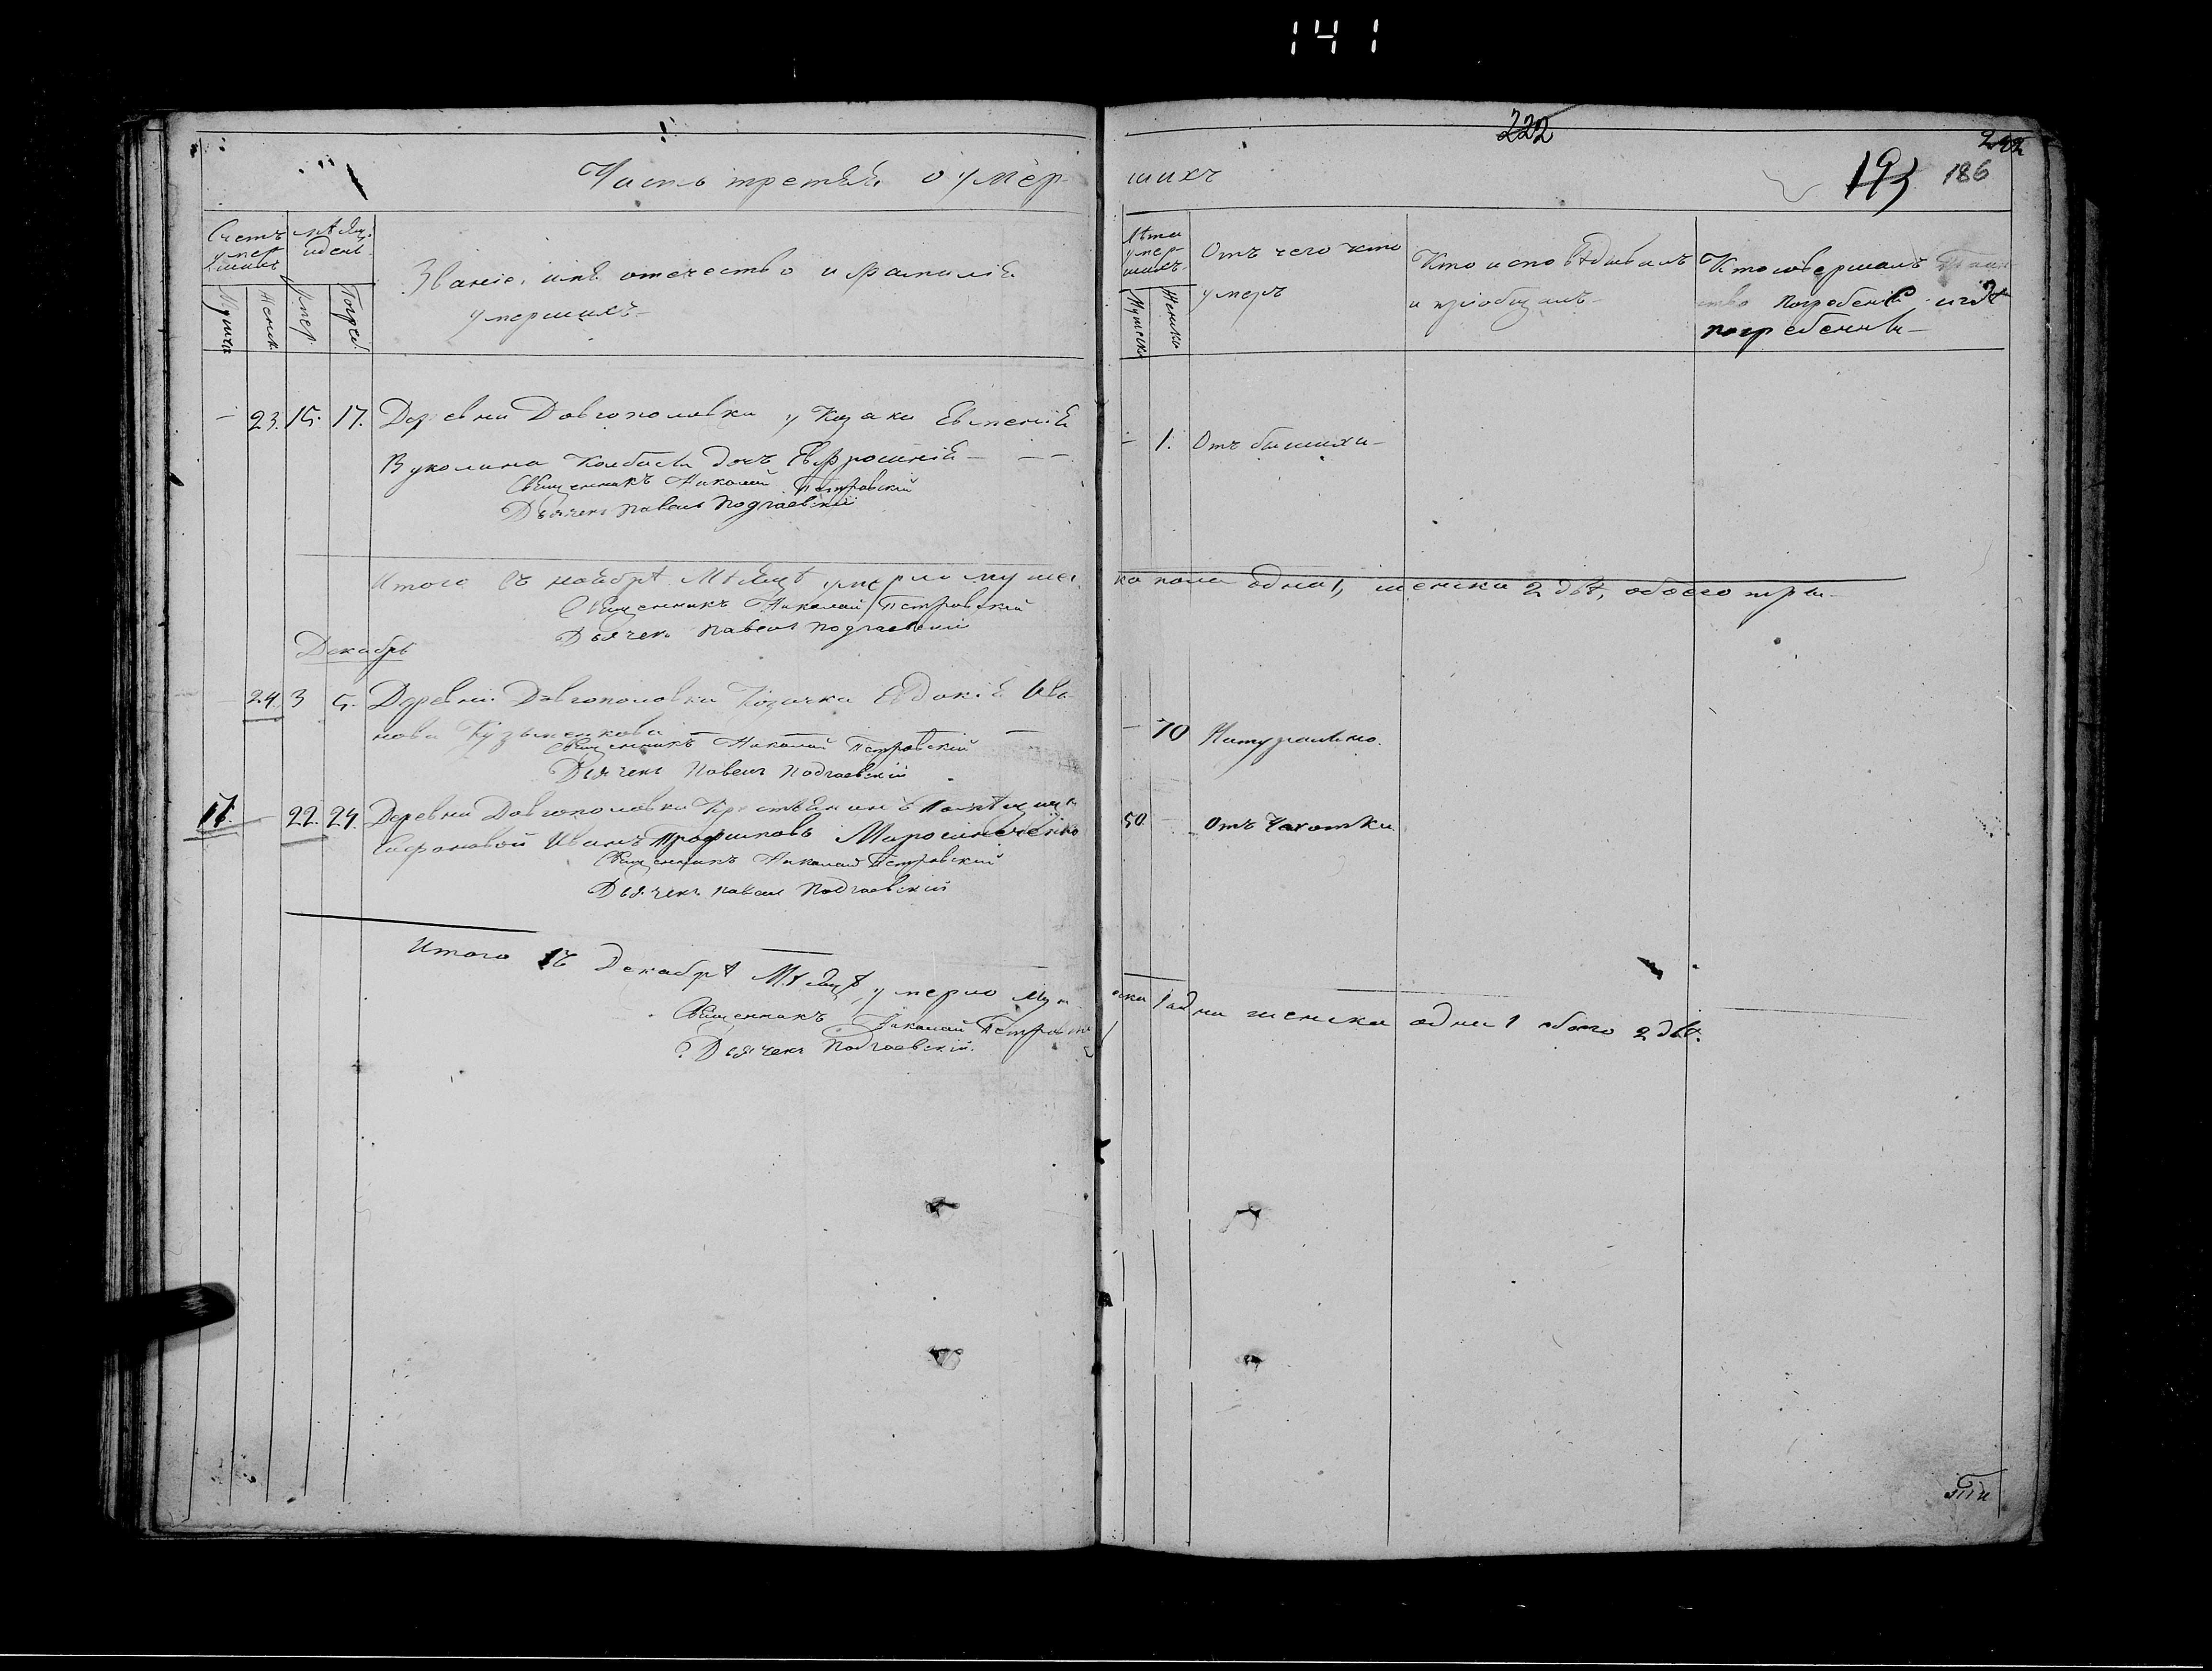 141
222
222
193 186
Часть третья о умер-
шихъ
Счетъ умер-
шихъ
Мѣсяцъ
и день
Званіе, имя отечество и фамилія
умершихъ-
Мужеск
Женск
Умер.
Погреб.
Лѣта
умер-
шихъ.
Мужеска
Женска
Отъ чего кто
умеръ
Кто исповѣдывалъ
и пріобщалъ-
Кто совершалъ Таин-
ство погребенія и гдѣ
погребенны-
- 23. 15. 17. Деревни Довгополовки у Козака Евгенія
Вуколина Колбасы дочь Евфросинія - - -
Священникъ Николай Петровскій
Дьячекъ Павелъ Подгаевскій
- 1. Отъ бышихи-
Итого въ ноябрѣ Мѣсяцѣ умерло мужес-
ка пола одна 1, женска 2 двѣ, обоего три-
Священникъ Николай Петровскій
Дьячекъ Павелъ Подгаевскій
Декабрь
24 3 5- Деревни Довгополовки Козачка Евдокія Ива-
нова Кузьменкова - - - -
Священникъ Николай Петровскій
Дьячекъ Павелъ Подгаевскій
- 70 Натурально.
17. - 22. 24. Деревни Довгополовки Крестьянинъ Помѣщицы
Сафоновой Иванъ Трофимовъ Мирошнеченко
Священникъ Николай Петровскій
Дьячекъ Павелъ Подгаевскій
50. - Отъ Чахотки
Итого въ Декабрѣ Мѣсяцѣ умерло Муж
еска 1 одна женска одна 1 обоего 2 двѣ.
Священникъ Николай Петровскій
Дьячекъ Подгаевскій.